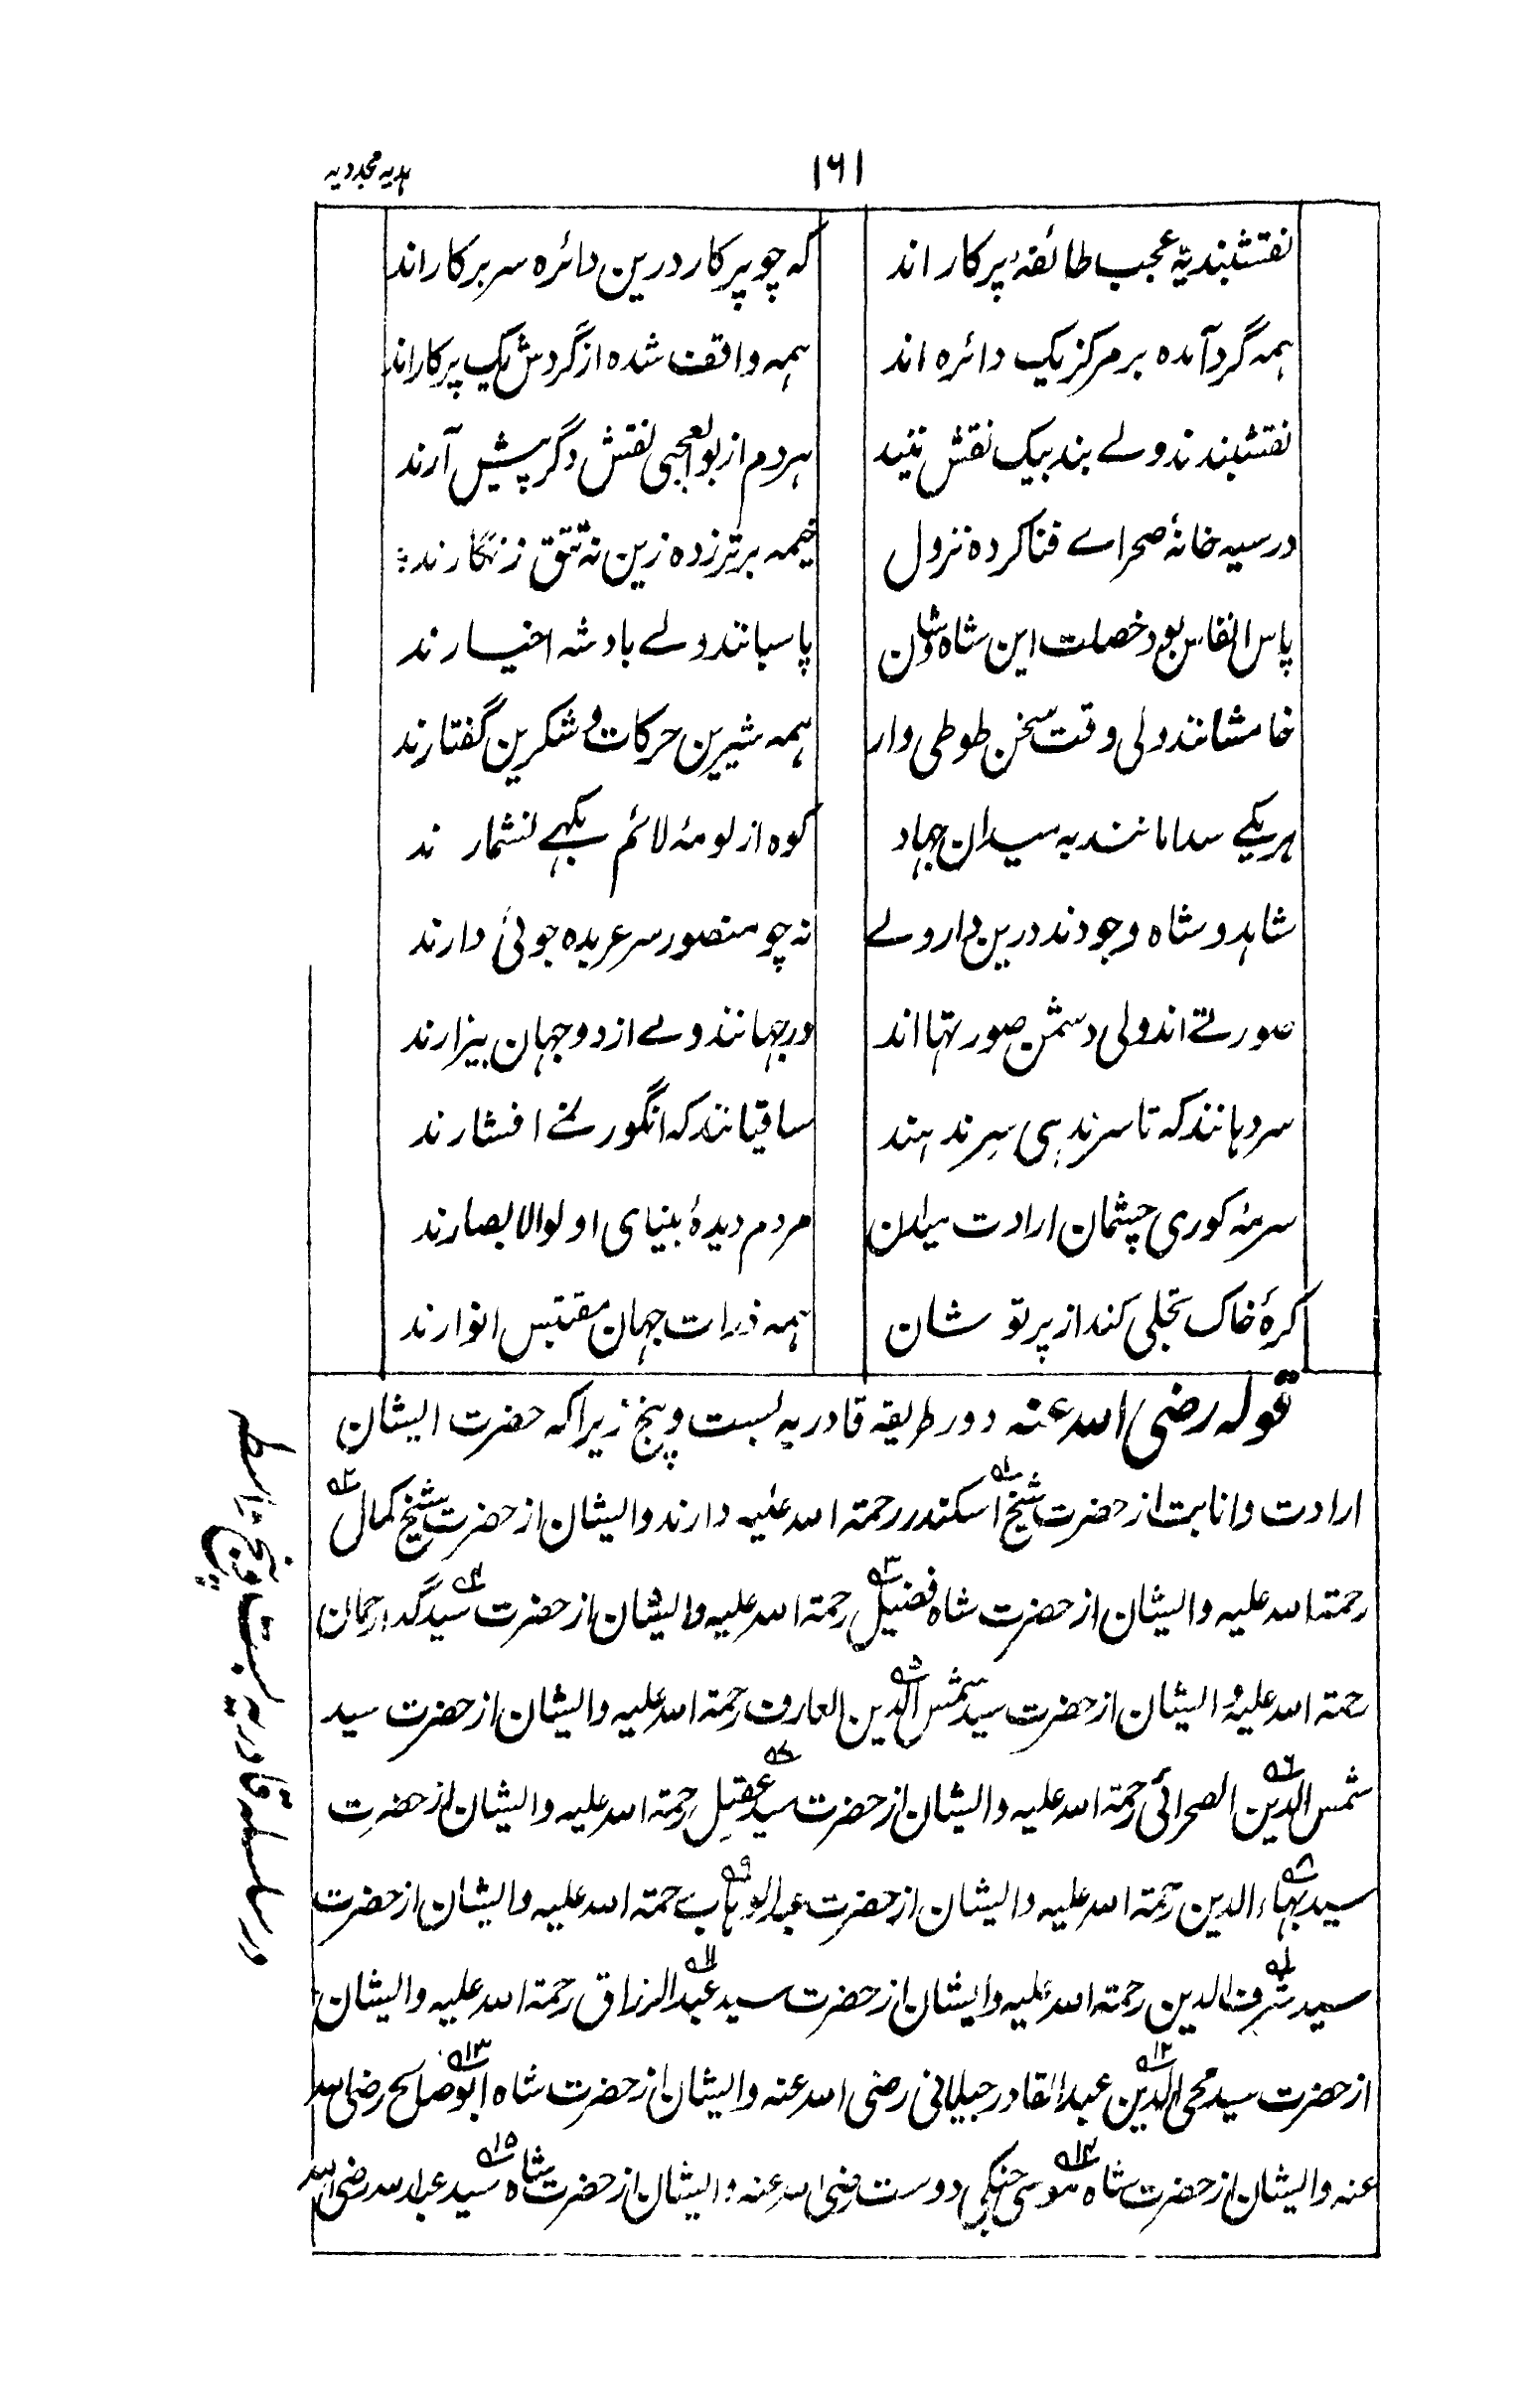 ہدیہ مجددیہ
۱۶۱
نقشبندیہ عجب طائفۂ پرکار اند
کہ چو پرکار درین دائرہ سر برکار اند
ہمہ گرد آمدہ بر مرکز یک دائرہ اند
ہمہ واقف شدہ از گردش یک پرکار اند
نقشبندند ولے بند بیک نقش نیند
ہر دم از بوالعجبی نقش دگر پیش آرند
در سیہ خانۂ صحراے فنا کردہ نزول
خیمہ برتر زدہ زین نہ تتق زنگارند
پاس انفاس بود خصلت این شاہ وشان
پاسبانند ولے بادشہ اخیارند
خامشانند ولی وقت سخن طوطی وار
ہمہ شیرین حرکات و شکرین گفتارند
ہر یکے بہ میدان جہاد
کوہ از لومۂ لائم بکہے نشمارند
شاہد و شاہ وجودند درین دار ولے
نہ چو منصور سر عربدہ جوئی دارند
صورتے اند ولی دشمن صورتہا اند
در جہانند ولے از دو جہان بیزارند
سر دہانند کہ تا سر ندہی سر ندہند
ساقیانند کہ انگور نمے افشارند
سرمۂ کوری چشمان ارادت میلان
مردم دیدۂ بینای اولوالابصارند
کرۂ خاک تجلی کند از پرتو شان
ہمہ ذرات جہان مقتبس انوارند
قولہ رضی اللہ عنہ ودر طریقہ قادریہ بست وپنج زیراکہ حضرت ایشان
ارادت وانابت از حضرت شیخ اسکندر رحمتہ اللہ علیہ دارند وایشان از حضرت شیخ کمال
رحمتہ اللہ علیہ وایشان از حضرت شاہ فضیل رحمتہ اللہ علیہ وایشان از حضرت سید گدا رحمان
رحمتہ اللہ علیہ وایشان از حضرت سید شمس الدین العارف رحمتہ اللہ علیہ وایشان از حضرت سید
شمس الدین الصحرائی رحمتہ اللہ علیہ وایشان از حضرت سید عقیل رحمتہ اللہ علیہ وایشان از حضرت
سید بہاء الدین رحمتہ اللہ علیہ وایشان از حضرت عبدالوہاب رحمتہ اللہ علیہ وایشان از حضرت
سید شرف الدین رحمتہ اللہ علیہ وایشان از حضرت سید عبدالرزاق رحمتہ اللہ علیہ وایشان
از حضرت سید محی الدین عبدالقادر جیلانی رضی اللہ عنہ وایشان از حضرت شاہ ابوصالح رضی اللہ
عنہ وایشان از حضرت شاہ موسی جنگی دوست رضی اللہ عنہ وایشان از حضرت شاہ سید عبداللہ رضی اللہ
در سلسلہ قادریہ بست وپنج واسطہ